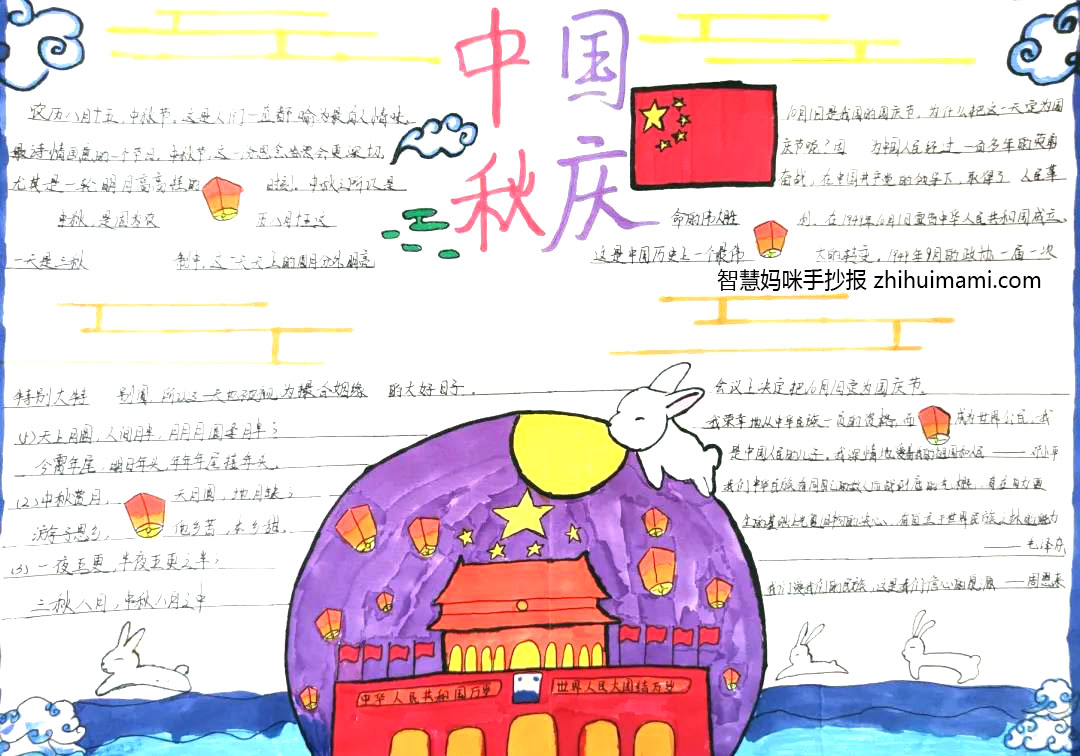 中国
中秋
国庆
农历八月十五，中秋节，这是人们一直都喻为最有人情味，
最诗情画意的一个节日，中秋节，这一份思念当然会更深切，
尤其是一轮明月高高挂的时候。中秋之所以是
中秋，是因为农历八月十五这
一天是三秋
制中，这一天天上的圆月分外明亮
特别大特别圆 所以这一天也被视为撮合姻缘的大好日子。
(1)天上月圆，人间月半，月月月圆逢月半；
今宵年尾，明日年头，年年年尾接年头。
(2)中秋赏月，天月圆，地月缺；
游子思乡，他乡苦，本乡甜。
(3)一夜五更，半夜五更之半；
三秋八月，中秋八月之中
10月1日是我国的国庆节，为什么把这一天定为国
庆节呢？因为中国人民经过一百多年的英勇
奋战，在中国共产党的领导下，取得了人民革
命的伟大胜利，在1949年10月1日宣告中华人民共和国成立。
这是中国历史上一个最伟大的转变，1949年9月的政协一届一次
智慧妈咪手抄报 zhihuimami.com
会议上决定把10月1日定为国庆节。
我荣幸地从中华民族一员的资格，而成为世界公民，我
是中国人民的儿子，我深情地爱着我的祖国和人民 —— 邓小平
我们中华民族有同自己的敌人血战到底的气概，有在自力更
生的基础上光复旧物的决心，有自立于世界民族之林的能力
—— 毛泽东
我们爱我们的民族，这是我们信心的源泉 —— 周恩来
中华人民共和国万岁
世界人民大团结万岁